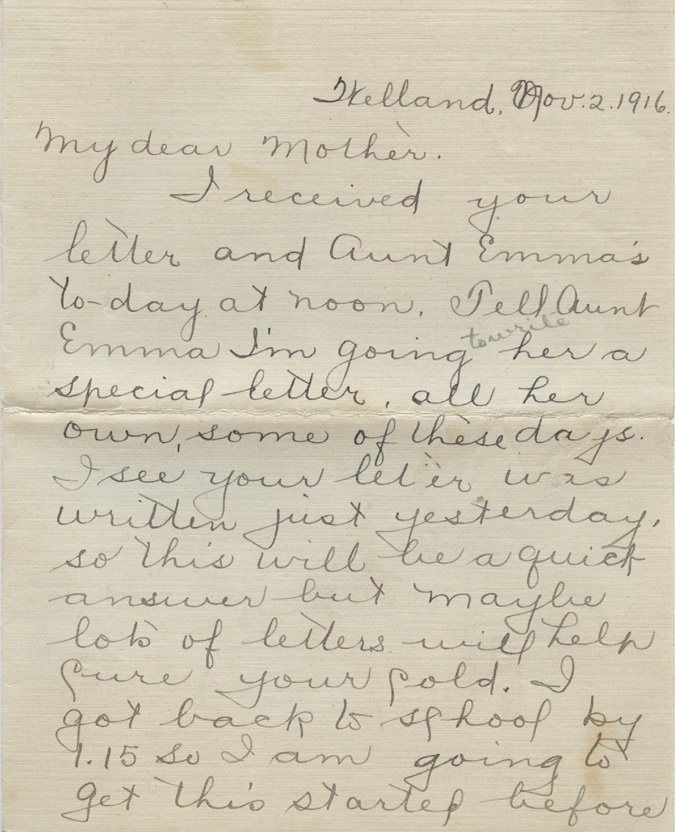 Welland, Nov. 2. 1916.
My dear Mother.
I received your
letter and Aunt Emma's
to-day at noon. Tell Aunt
to write
Emma I'm going her a
special letter, all her
own, some of these days.
I see your letter was
written just yesterday,
so this will be a quick
answer but maybe
lots of letters will help
cure your cold. I
got back to school by
1.15 so I am going to
get this started before